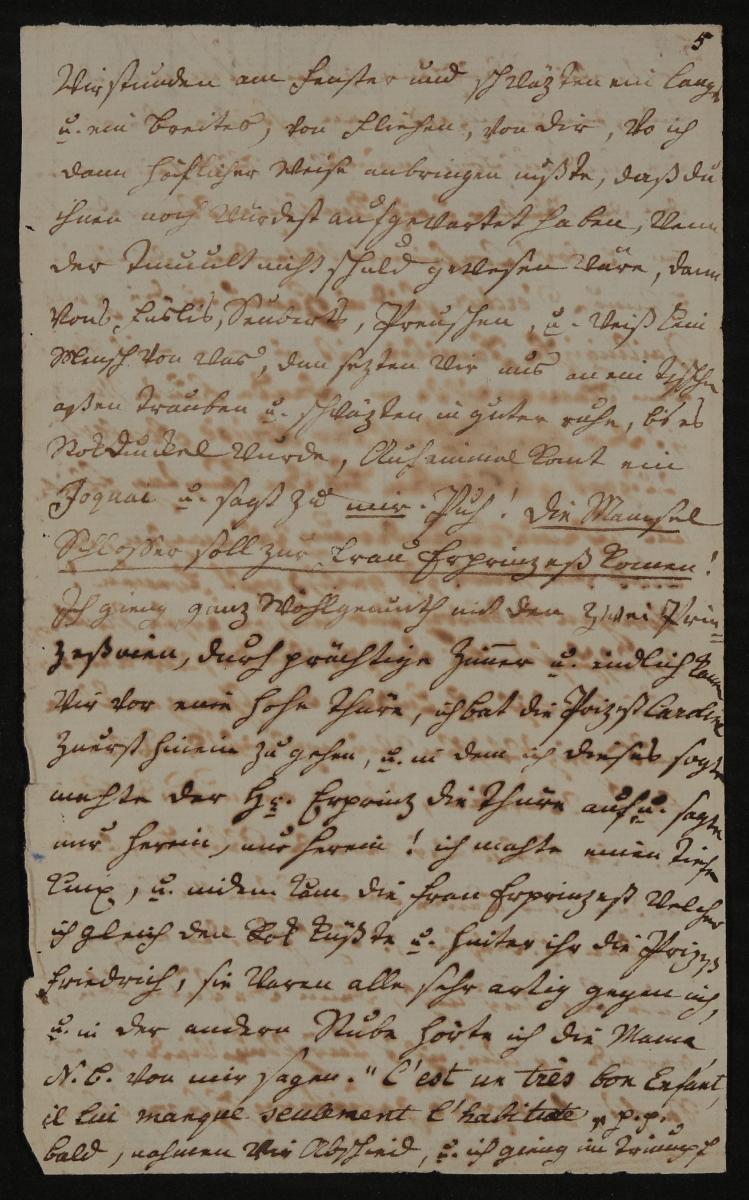 5
Wir stunden am Fenster und schwäzten ein langes
u. ein breites, von Fliehen, von dir, wo ich
dann höflicher Weise anbringen mußte, daß du
ihnen noch würdest aufgewartet haben, wenn
der Tumult nicht schuld gewesen wäre, dann
von Lüslis, Seuberts, Preuschen, u. weiß kein
Mensch von was, dan sezten wir uns an ein Tischen
aßen Trauben u. schwäzten in guter ruhe, bis es
Stokdunkel wurde, Auf einmal komt ein
u. sagt zu mir. Puh! die Mamsel
Schlosser soll zur Frau Erbprinzeß komen!
Ich gieng ganz Wohlgemuth mit den zwei Prin=
zeßinen, durch prächtige Zimer u. endlich kamen
wir vor eine hohe Thüre, ich bat die Prizeß Caroline
zuerst hinein zu gehen, u. in dem ich dieses sagte
machte der Hr. Erprinz die Thüre auf u. sagte
nur herein, nur herein! ich machte einen tiefen
Knix, u. indem kam die Frau Erprinzeß welcher
ich gleich den Rok küßte u. hinter ihr die Prinzß
Friedrich, sie waren alle sehr artig gegen mich,
u. in der andern Stube hörte ich die Mama
N.B. von mir sagen. "C'est un très bon Enfant,
il lui manque seulement l'habitude" p.p.
bald, nahmen wir Abschied, u. ich gieng im Triumpf